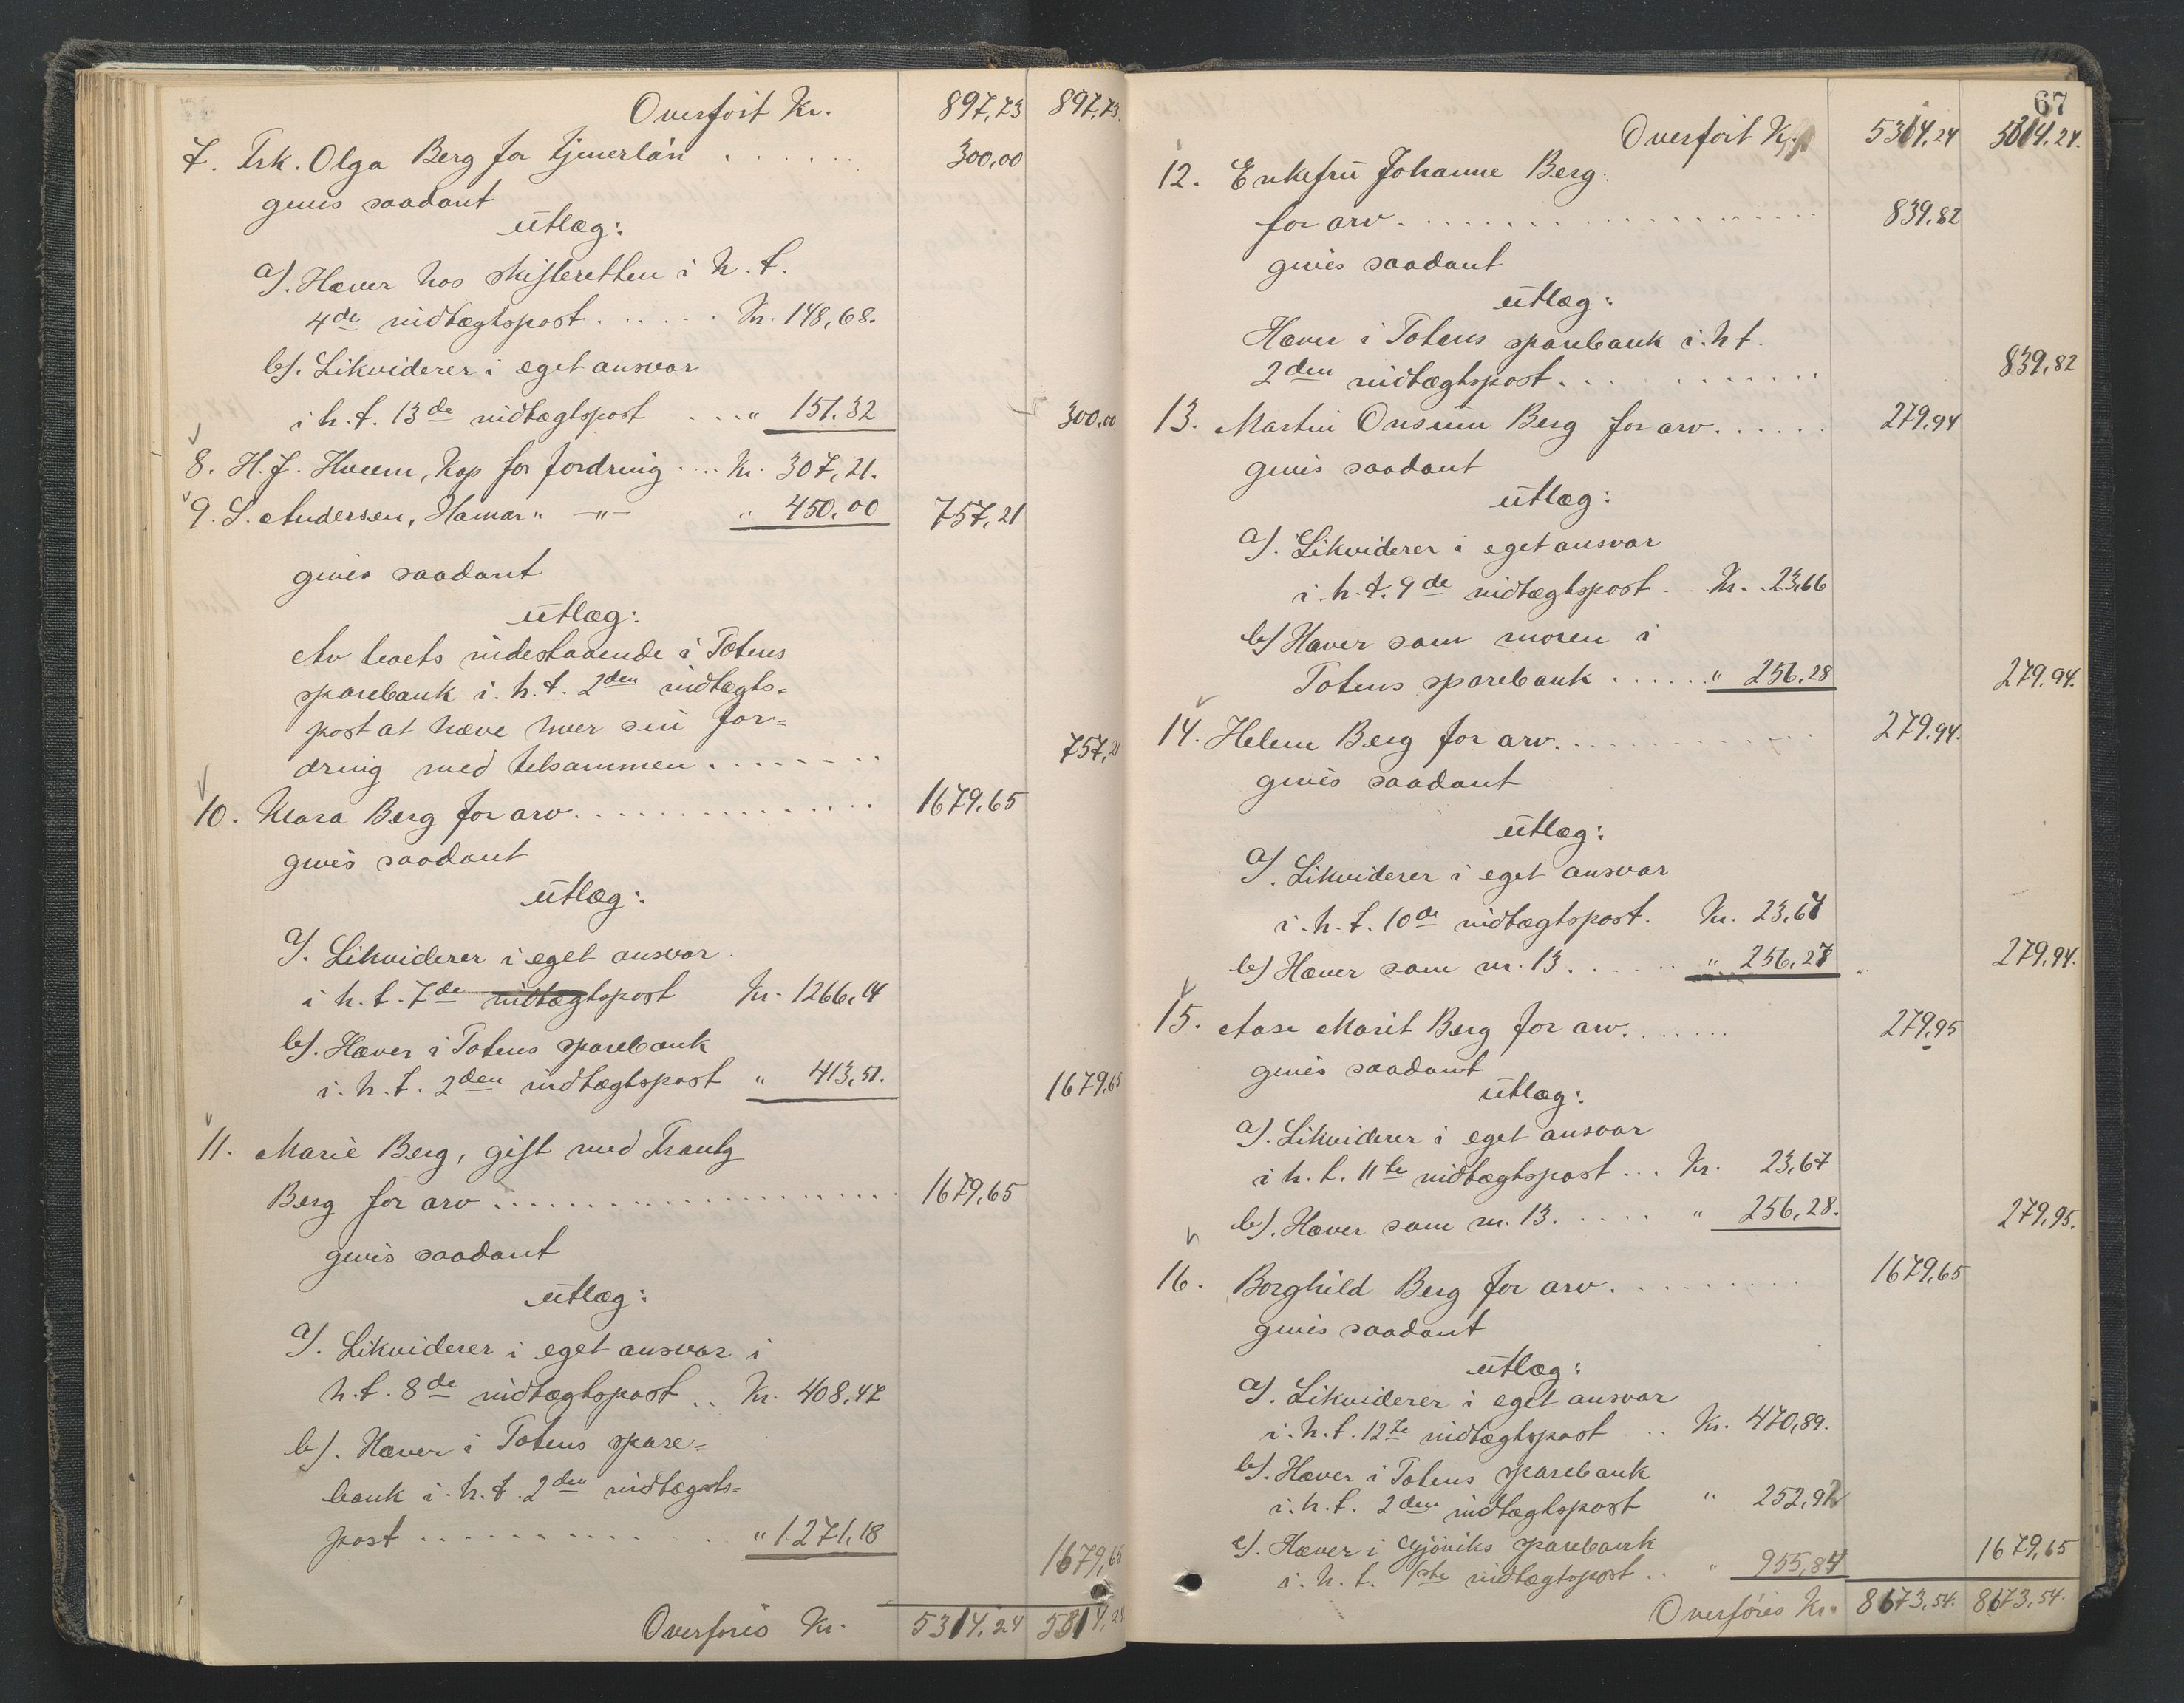 Overført Kr. 897,73 897,73.
7. Frk. Olga Berg for tjenerløn . . . . . . 300,00
gives saadant
utlæg:
a). Hæver hos skifteretten i h. t.
4de indtægtspost . . . . . . Kr. 148,68.
b). Likviderer i eget ansvar
i h. t. 13de indtægtspost . . . " 151.32 300.00
8. H. J. Hveem, Kap for fordring . . . . Kr. 307,21.
9. S. Andersen, Hamar " —"— " 450.00 757,21
gives saadant
utlæg:
Av boets indestaaende i Totens
sparebank i. h. t. 2den indtægts=
post at hæve hver sin for=
dring med tilsammen . . . . . . . 757,2
10. Klara Berg for arv . . . . . . . . . . . . . 1679.65
gives saadant
utlæg:
a). Likviderer i eget ansvar
i h. t. 7de indtægtspost Kr. 1266,14
b). Hæver i Totens sparebank
i. h. t. 2den indtægtspost " 413,51. 1679.65
11. Marie Berg, gift med Frantz
Berg for arv . . . . . . . . . . . . . . . . . . 1679,65
gives saadant
utlæg:
a). Likviderer i eget ansvar i
h. t. 8de indtægtspost . . Kr. 408,47
b). Hæver i Totens spare=
bank i. h. t. 2den indtægts=
post . . . . . . . . . . . . " 1.271,18 1679,65
Overføres Kr. 5314,24 5314,24
67
Overført Kr. 5314,24 5314,24.
12. Enkefru Johanne Berg:
for arv . . . . . . . . . . . . . . . . . . . 839.82
gives saadant
utlæg:
Hæver i Totens sparebank i. h t.
2den indtægtspost . . . . . . . . . . . 839,82
13. Martin Onsum Berg for arv. . . . . . 279.94
gives saadant
utlæg:
a). Likviderer i eget ansvar
i. h. t. 9de indtægtspost . . Kr. . 23,66
b) Hæver som moren i
Totens sparebank . . . . . . " 256,28 279.94.
14. Helene Berg for arv. . . . . . . . . . . . 279.94.
gives saadant
utlæg:
a). Likviderer i eget ansvar
i. h. t. 10de indtægtspost. Kr. 23,67
b) Hæver som nr. 13. . . . . . . " 256,27 279,94.
15. Aase Marit Berg for arv. . . . . . . 279,95
gives saadant
utlæg:
a). Likviderer i eget ansvar
i h. t. 11te indtægtspost . . . Kr. 23,67
b). Hæver som nr. 13. . . . . . " 256,28. 279,95.
16. Borghild Berg for arv. . . . . . . . . 1679,65
gives saadant
utlæg:
a). Likviderer i eget ansvar
i. h. t. 12te indtægtspost . . Kr. 470,89.
b). Hæver i Totens sparebank
i. h. t. 2den indtægtspost " 252,92
c). Hæver i Gjøviks sparebank
i. h. t. 1ste indtægtspost . . " 955,84 1679,65
Overføres Kr. 8673,54. 8673,54.